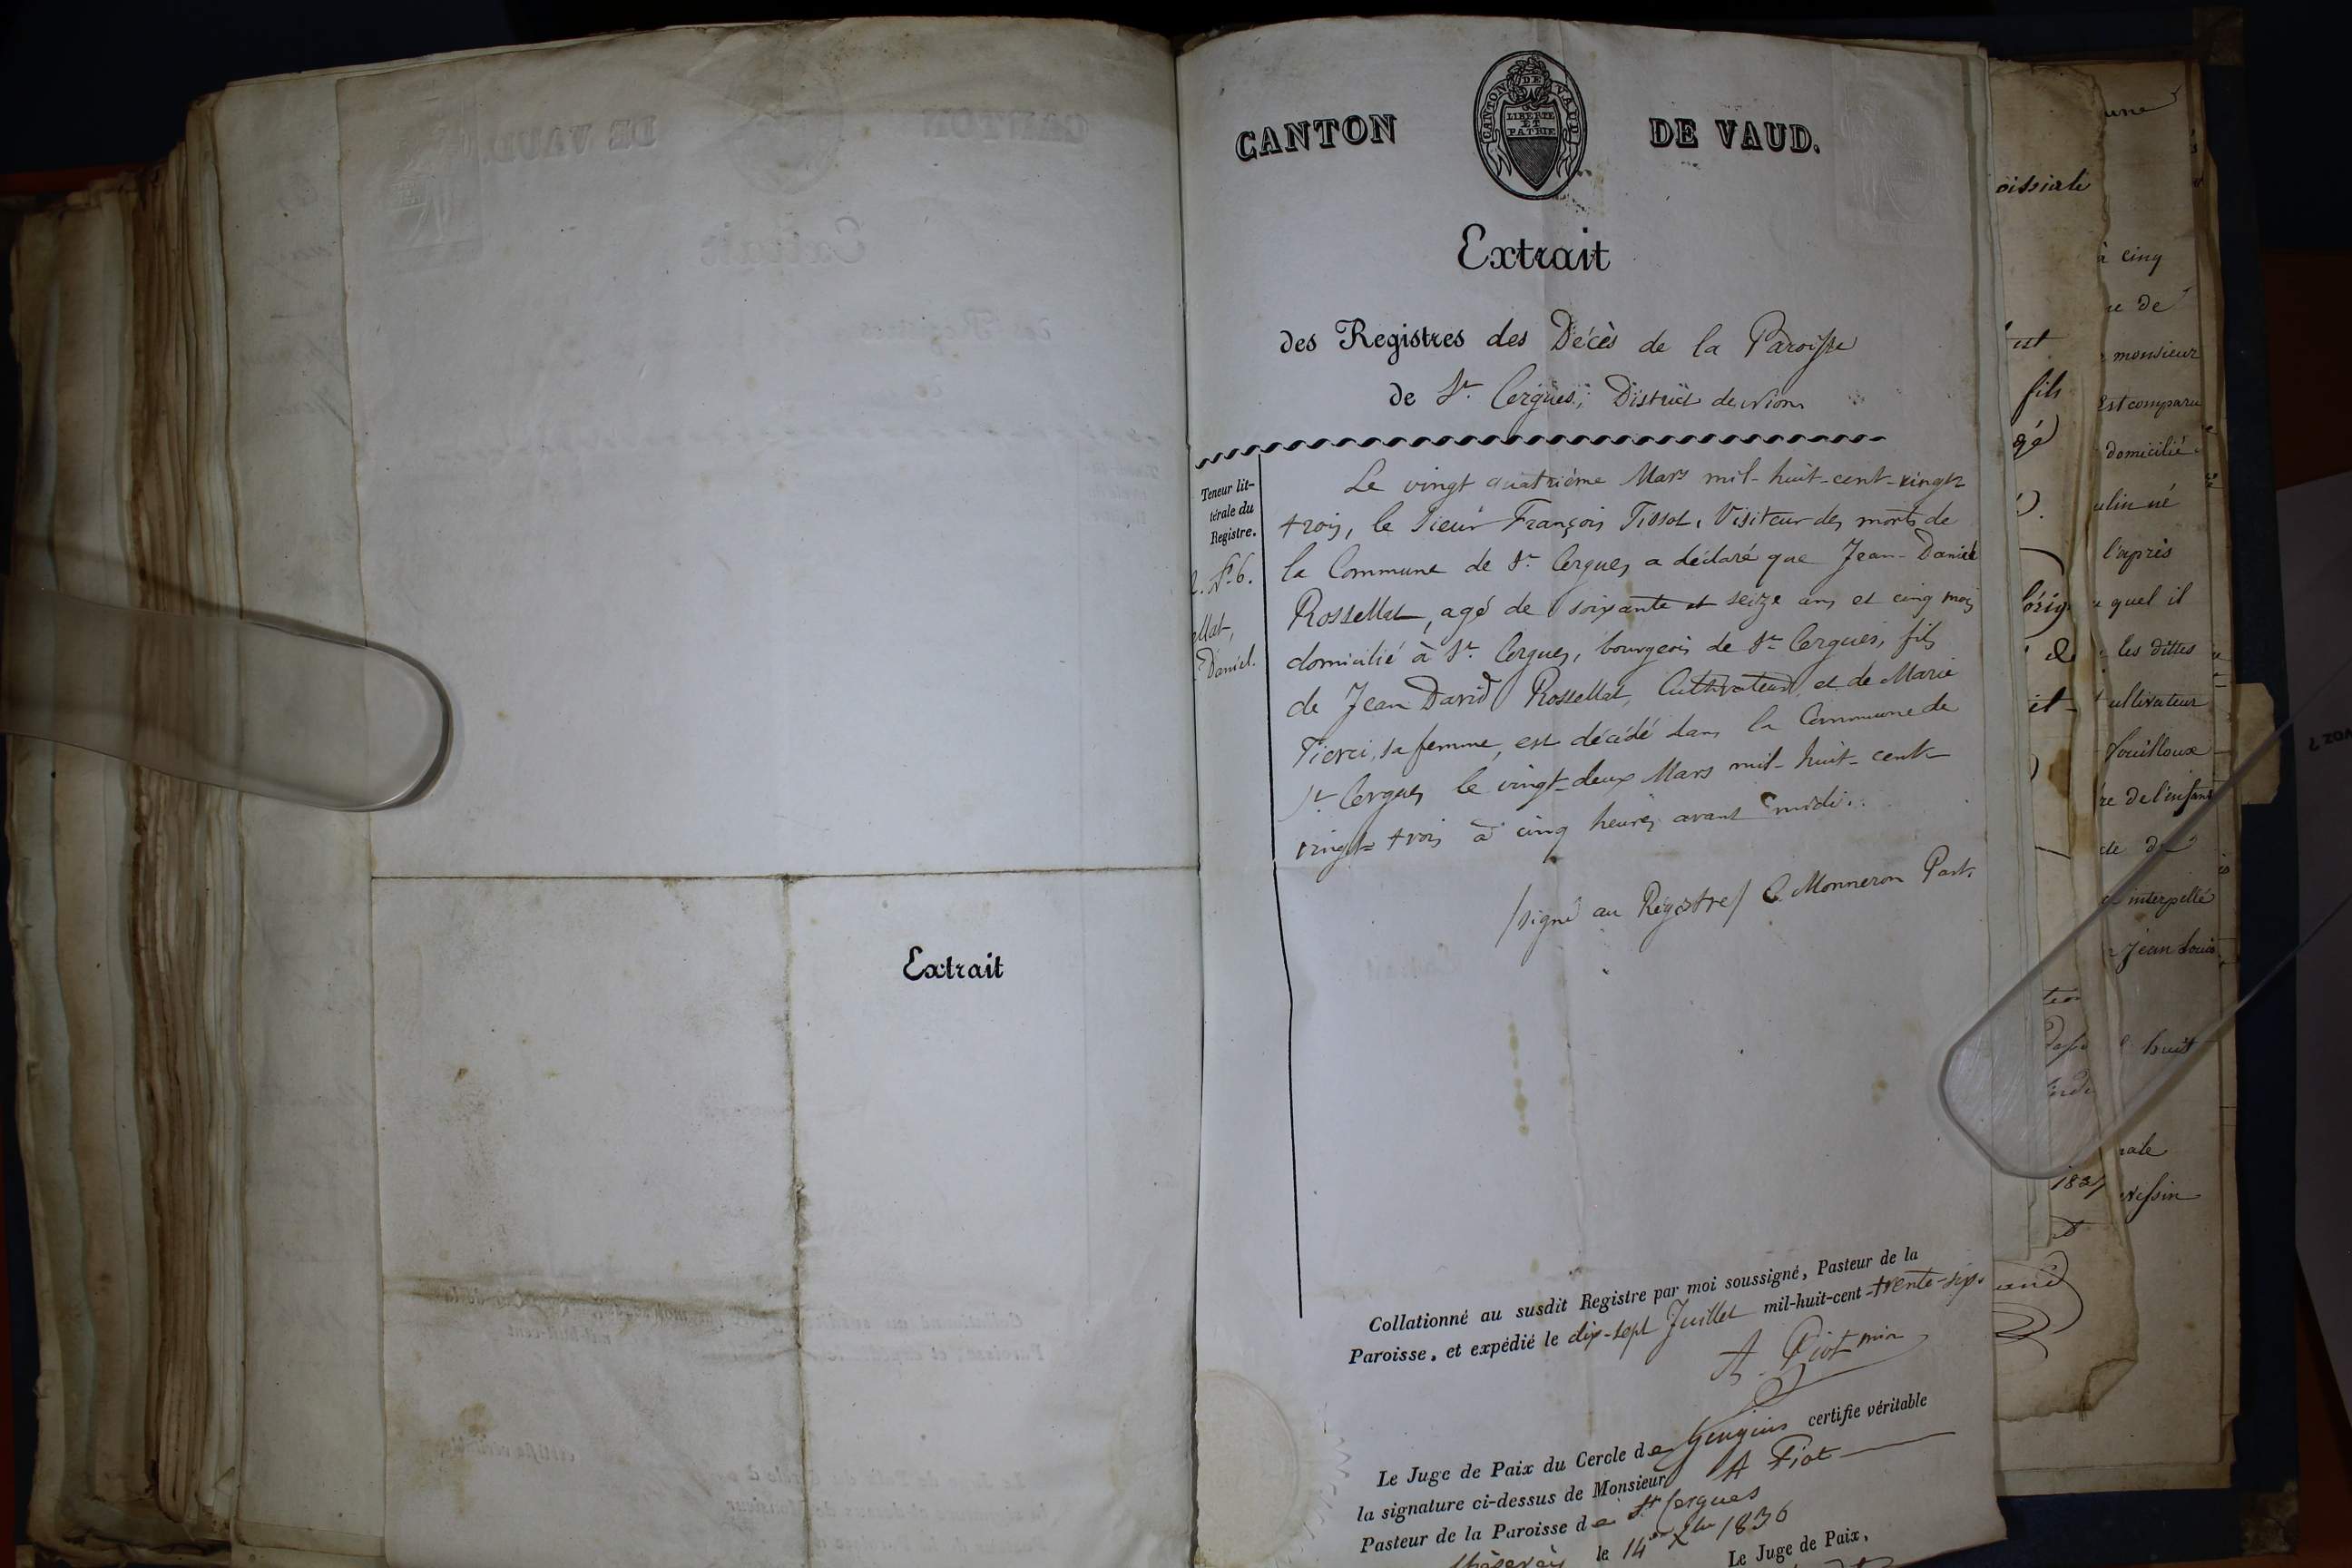 CANTON DE VAUD.
CANTON DE VAUD
LIBERTÉ
ET
PATRIE
Extrait
des Registres des Décès de la Paroisse
de St. Cergues, District de Nion
Teneur lit-
térale du
Registre.
No 6.
llat,
Daniel.
Le vingt quatrième Mars mil-huit-cent-vingt
trois, le Sieur François Tissot, Visiteur des morts de
la Commune de St. Cergues a déclaré que Jean-Daniel
Rossellat, agé de soixante et seize ans et cinq mois
domicilié à St. Cergues, bourgeois de St. Cergues, fils
de Jean David Rossellat, Cultivateur, et de Marie
sa femme, est décédé dans la Commune de
St. Cergues le vingt-deux Mars mil-huit-cent
vingt-trois à cinq heures avant midi.
/signé au Régistre/ Monneron Past.
Collationné au susdit Registre par moi soussigné, Pasteur de la
Paroisse, et expédié le dix-sept Juillet mil-huit-cent-trente-sept.
A. Piot min
Le Juge de Paix du Cercle de Gengins certifie véritable
la signature ci-dessus de Monsieur A Piot
Pasteur de la Paroisse de St Cergues
le 14 Xbre 1836
Le Juge de Paix,
Extrait
oissiale
est
fils
agé
une
à cinq
de
monsieur
Est comparu
domicilié
né
l'après
quel il
les dittes
ultivateur
re de l'enfant
interpellé
Jean Louis
huit